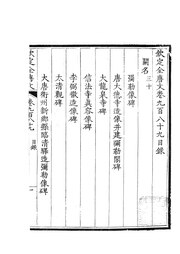 欽定全唐文卷九百八十九目錄
闕名三十
彌勒像碑
唐大德寺造像并建彌勒閣碑
信法寺真容像碑
造像碑
太清觀碑
大唐衛州新鄉縣臨清驛造彌勒像碑
欽定全唐文 卷九百八九 目錄 一